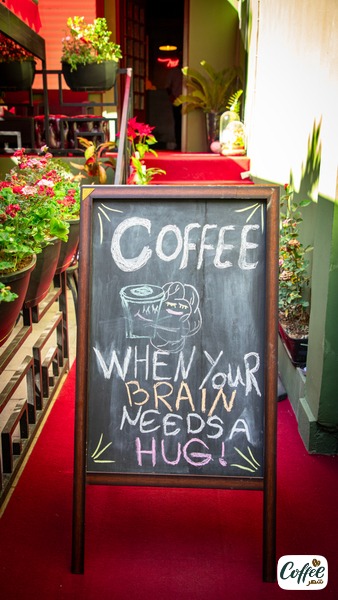 COFFEE
WHEN YOUR
BRAIN
NEEDS A
HUG!
Coffee